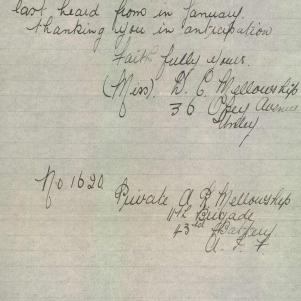 last heard from in January.
thanking you in anticipation
Faithfully yours.
(Miss). D. E. Mellowship
36 Avenue
Unley
No. 1620
Private A R Mellowship
11th Brigade
43rd Battery
A. I. F